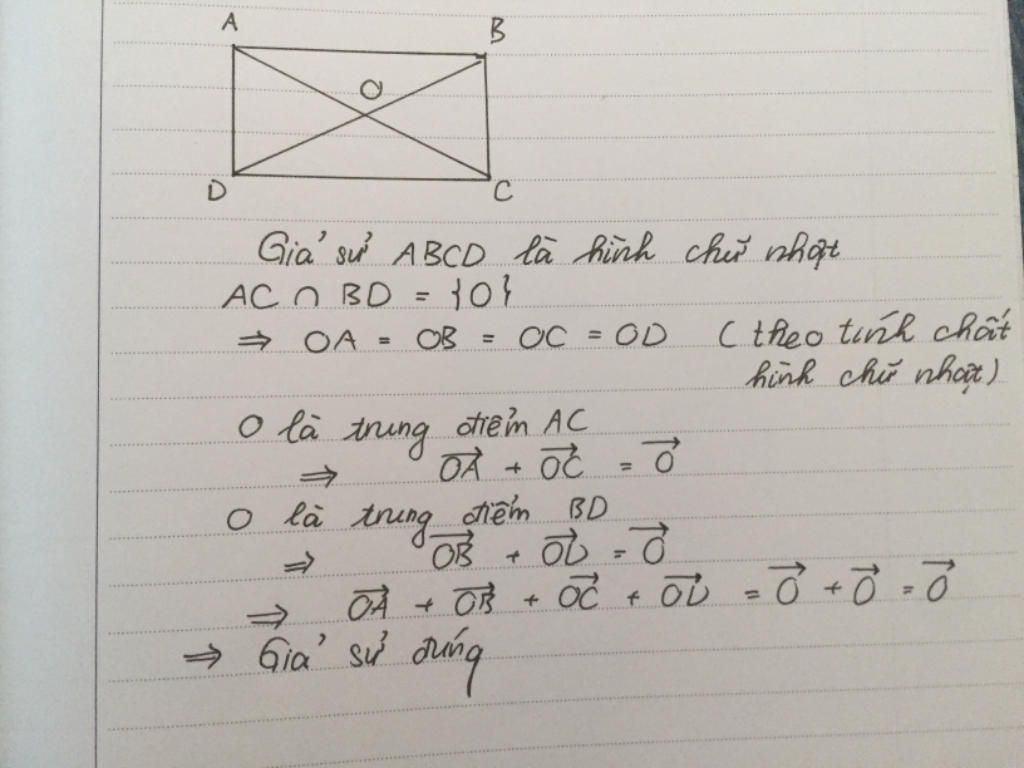 A
B
O
D
C
Giả sử ABCD là hình chữ nhật
AC ∩ BD = {O}
⇒ OA = OB = OC = OD (theo tính chất
hình chữ nhật)
O là trung điểm AC
⇒ \overrightarrow{OA} + \overrightarrow{OC} = \overrightarrow{O}
O là trung điểm BD
⇒ \overrightarrow{OB} + \overrightarrow{OD} = \overrightarrow{O}
⇒ \overrightarrow{OA} + \overrightarrow{OB} + \overrightarrow{OC} + \overrightarrow{OD} = \overrightarrow{O} + \overrightarrow{O} = \overrightarrow{O}
⇒ Giả sử đúng